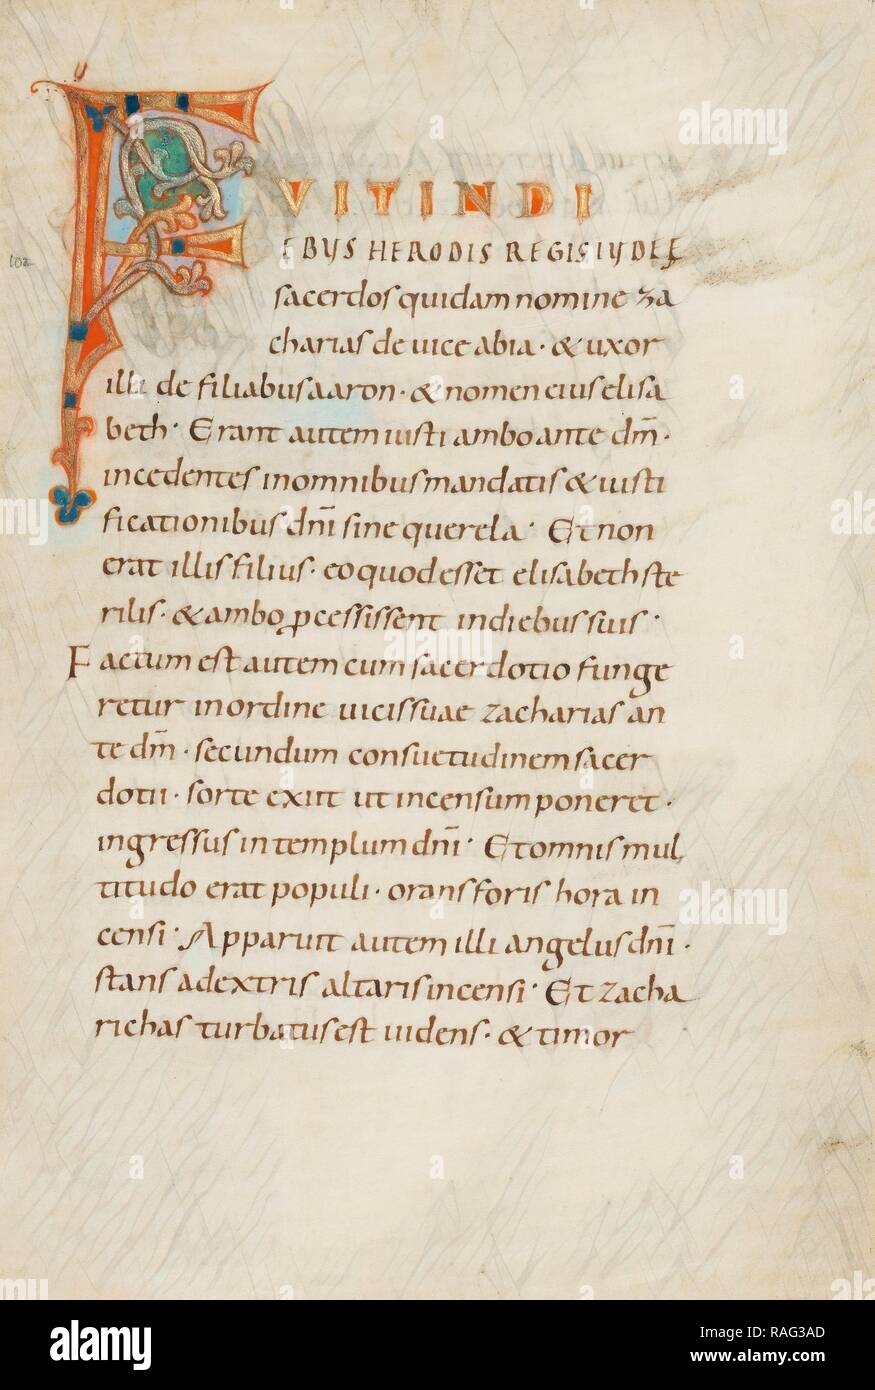 FVITINDI
EBUS HERODIS REGIS IUDEE
sacerdos quidam nomine za
charias de uice abia · & uxor
illi de filiabus aaron · & nomen eius elisa
beth · Erant autem iusti ambo ante dm̄ ·
incedentes in omnibus mandatis & iusti
ficationibus dnī sine querela · Et non
erat illis filius · eo quod esset elisabeth ste
rilis · & ambo ꝓcessissent in diebus suis ·
Factum est autem cum sacerdotio funge
retur in ordine uicis suae zacharias an
te dm̄ · secundum consuetudinem sacer
dotii · sorte exiit ut incensum poneret ·
ingressus in templum dnī · Et omnis mul
titudo erat populi · orans foris hora in
censi · Apparuit autem illi angelus dnī ·
stans a dextris altaris incensi · Et zacha
richas turbatus est uidens · & timor
102
alamy
Image ID: RAG3AD
www.alamy.com